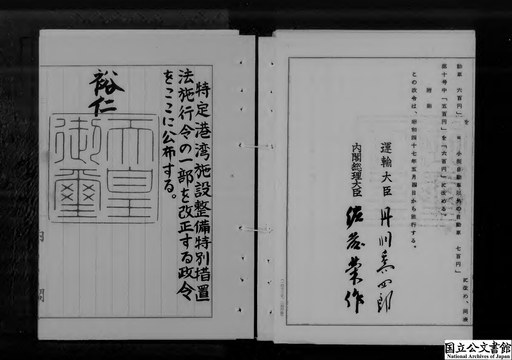 特定港湾施設整備特別措置
法施行令の一部を改正する政令
をここに公布する。
裕仁
天皇
御璽
動車 六百円」を「小型自動車以外の自動車 七百円」に改め、同条
第十号中「五百円」を「六百円」に改める。
附則
この政令は、昭和四十七年五月四日から施行する。
運輸大臣 丹羽喬四郎
内閣総理大臣 佐藤榮作
国立公文書館
National Archives of Japan